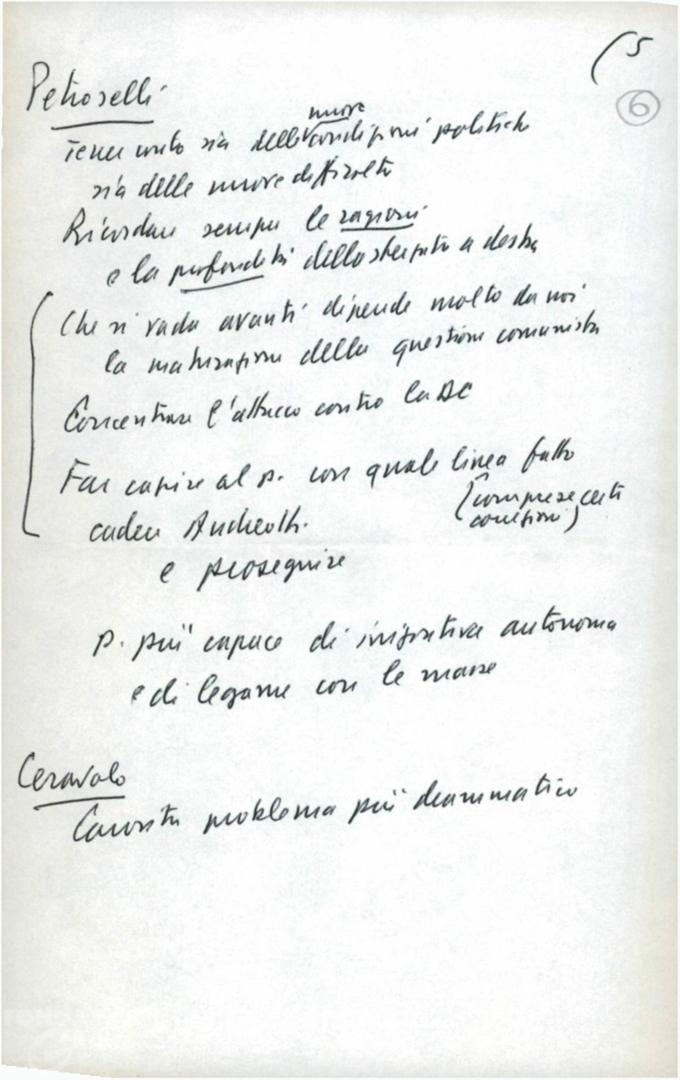 (5
6
Petroselli
nuove
Tener conto sia delle condizioni politiche
sia delle nuove difficoltà
Ricordare sempre le ragioni
e la profondità dello sterzata a destra
Che si vada avanti dipende molto da noi
la maturazione della questione comunista
Concentrare l'attacco contro la DC
Far capire al p. con quale linea fatto
(comprese certi
cadere Andreotti.
e proseguire
p. più capace di iniziativa autonoma
e di legame con le masse
Ceravolo
Carovita problema più drammatico